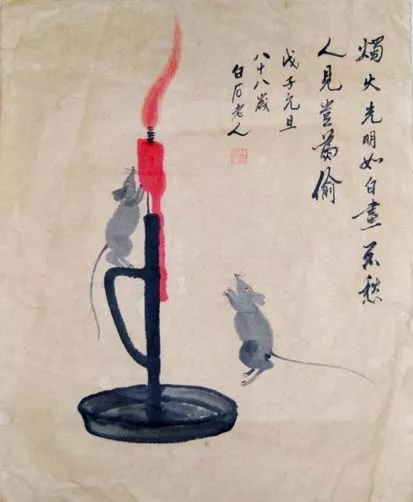 燭火光明如白晝不愁
人見豈為偷
戊子元旦
八十八歲
白石老人